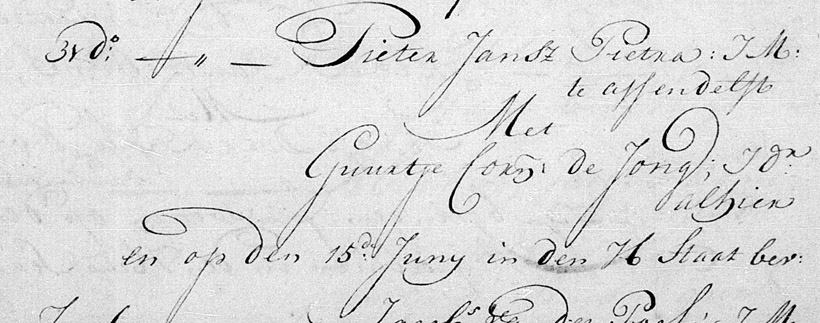 3 v do: — „ — Pieter Jansz Pietra: J M:
te assendelft
Met
Guurtje Corn: de Jong; J Dr
alhier
en op den 15de: Juny in den H Staat bev:
J M